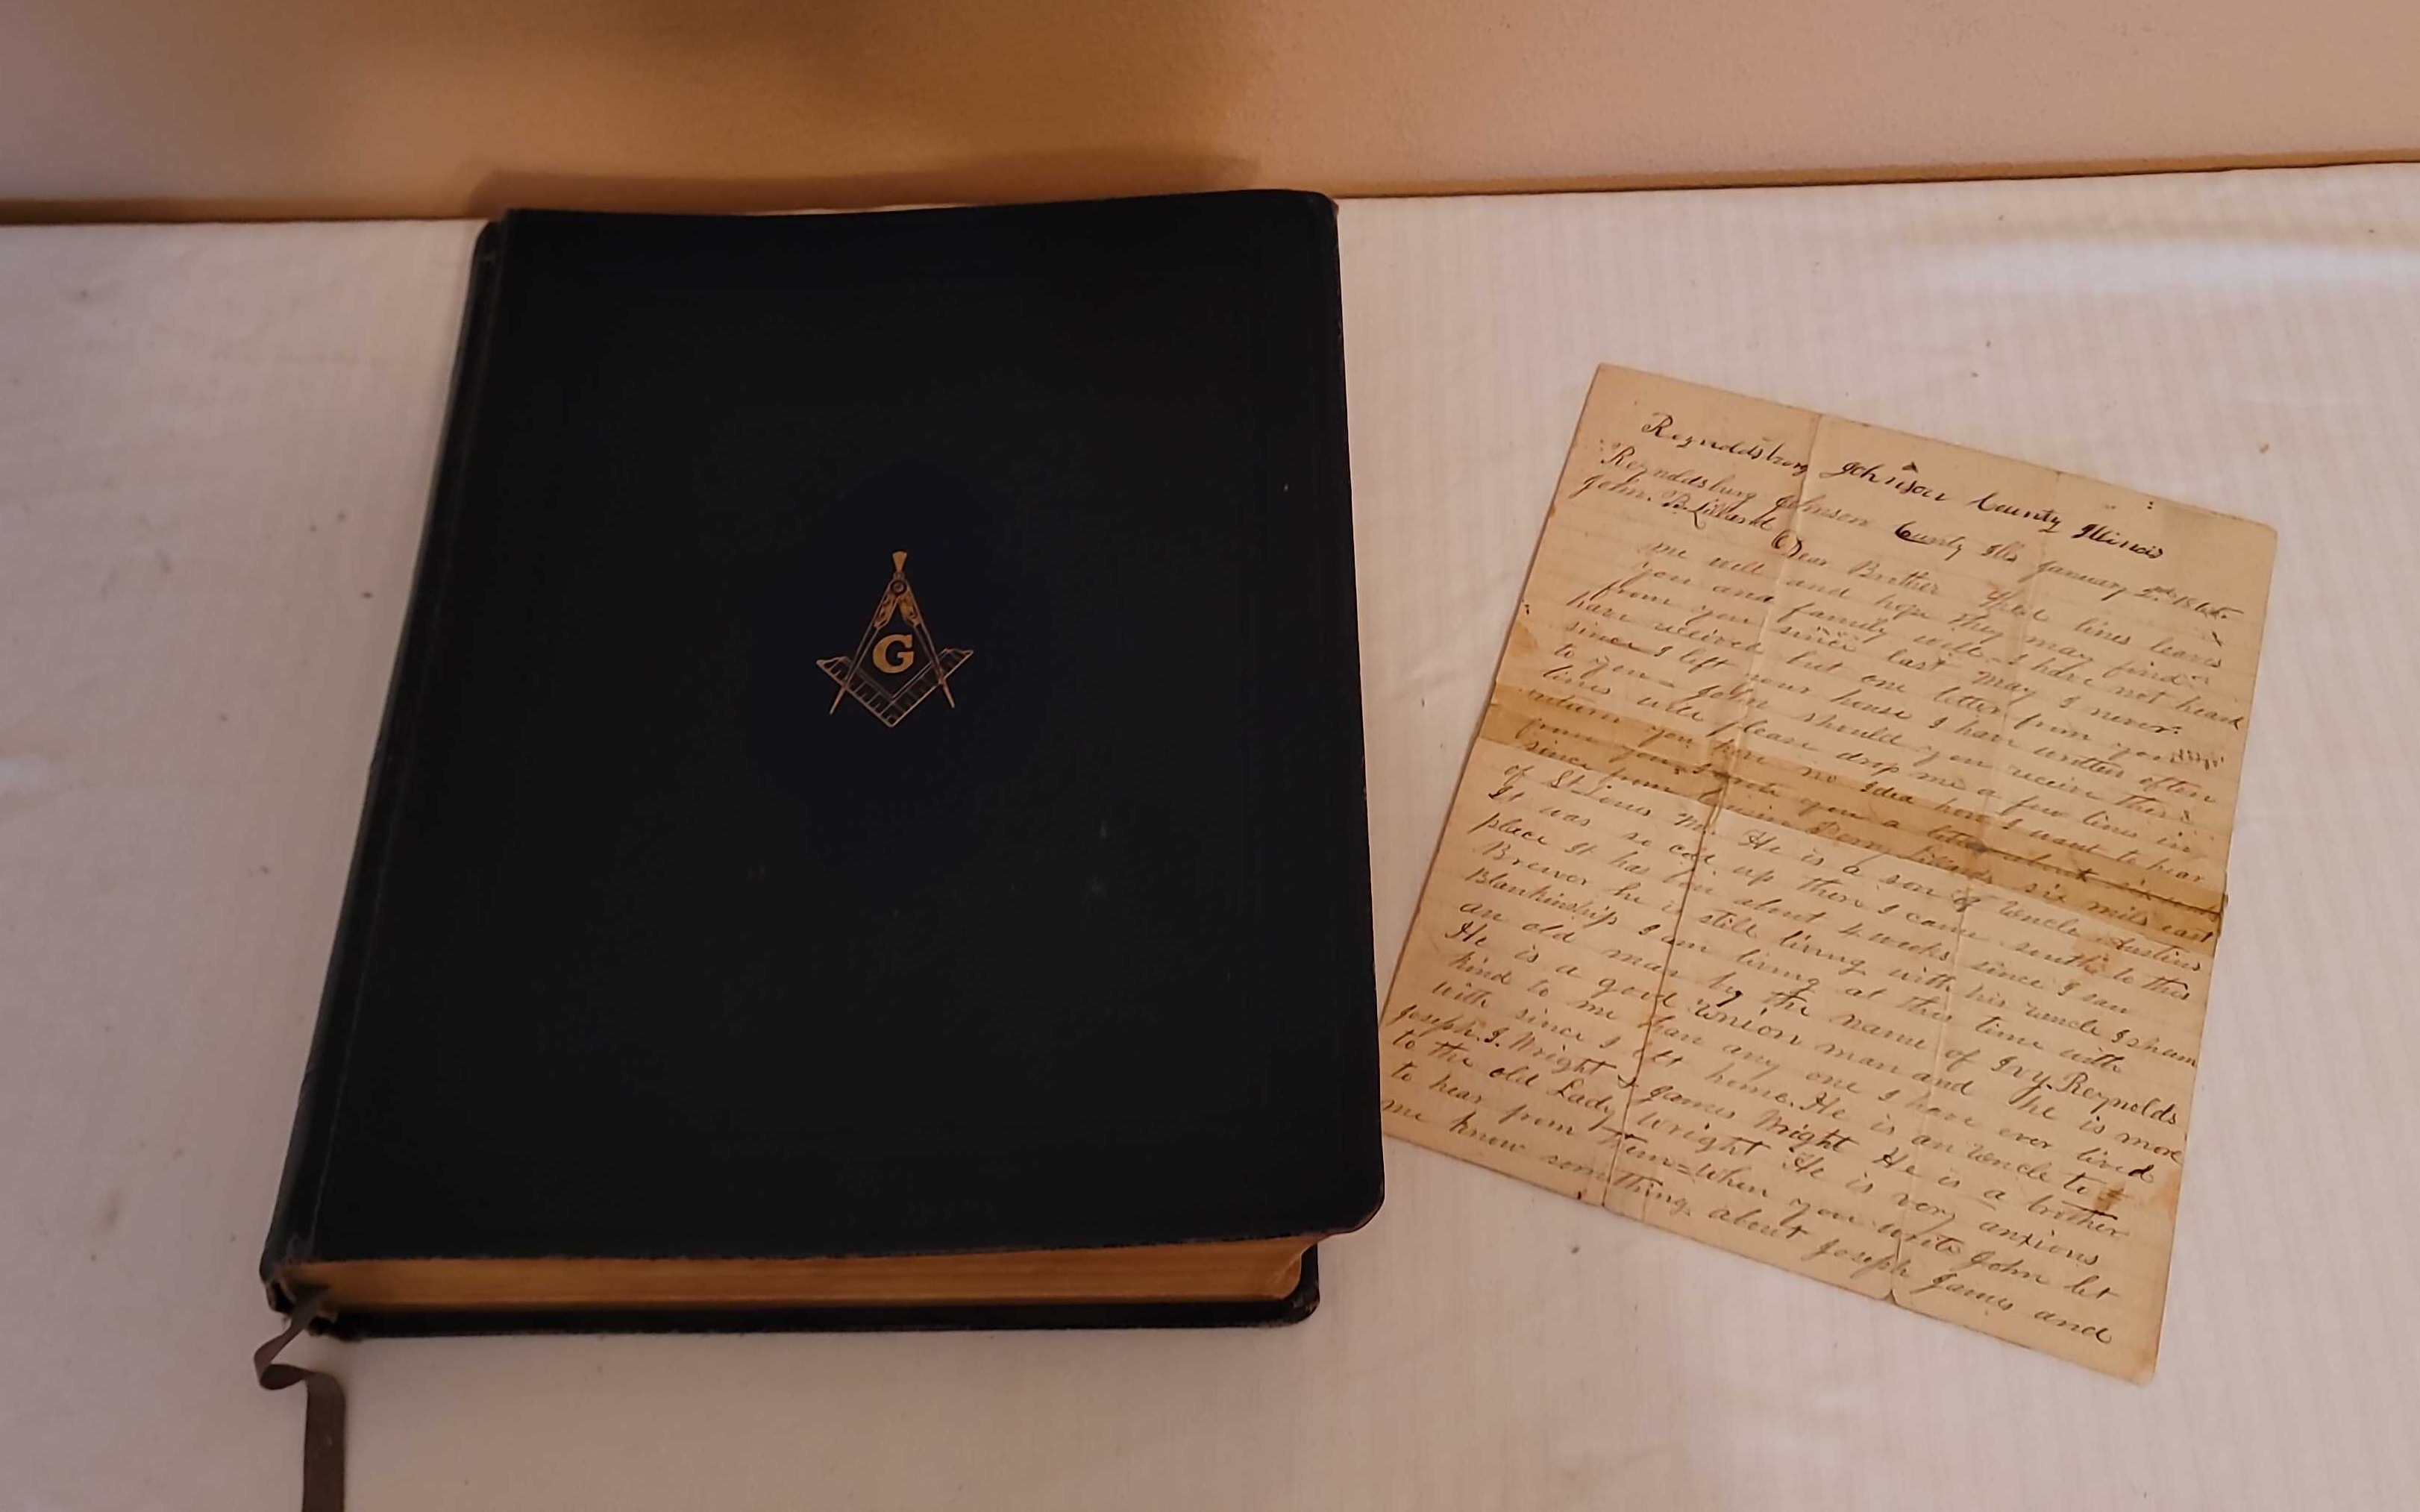 G
Reynoldsburg Johnson County Illinois
Reynoldsburg Johnson County Ills January 2nd
John. B. Lillard Dear Brother Theid lines leave
me well and hope they may find
you and family well = I have not heard
from you since last May I never
have received but one letter from you
since I left your house I have written often
to you = John should you receive these
lines will please drop me a few lines in
return you have no Idea how I want to hear
from you I wrote you a letter about six weeks
since from Lillards six mils east
of St Louis Mo. He is a son of Uncle Austins
It was so cold up there I came south to this
place It has bin about 4 weeks since I saw
Brewer he is still living with his uncle Isham
Blankinship I am living at this time with
an old man by the name of Ivy. Reynolds
He is a good Union man and he is more
kind to me than any one I have ever lived
with since I left home. He is an uncle to =
Joseph. I. Wright & James Wright He is a brother
to the old Lady Wright He is very anxious
to hear from them = when you write John let
me know somithing about Joseph James and